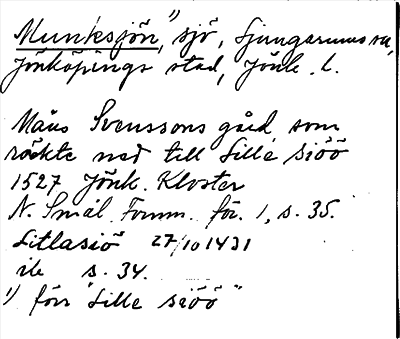 Munksjön,¹⁾ sjö, Ljungarums sn,
Jönköpings stad, Jönk. l.
Måns Svenssons gård som
räckte ned till Lille siöö
1527 Jönk. Kloster
N. Smål. Fornm. för. 1, s. 35.
Litlasiö 27/10 1431
ib s. 34.
¹⁾ förr "Lille siöö"